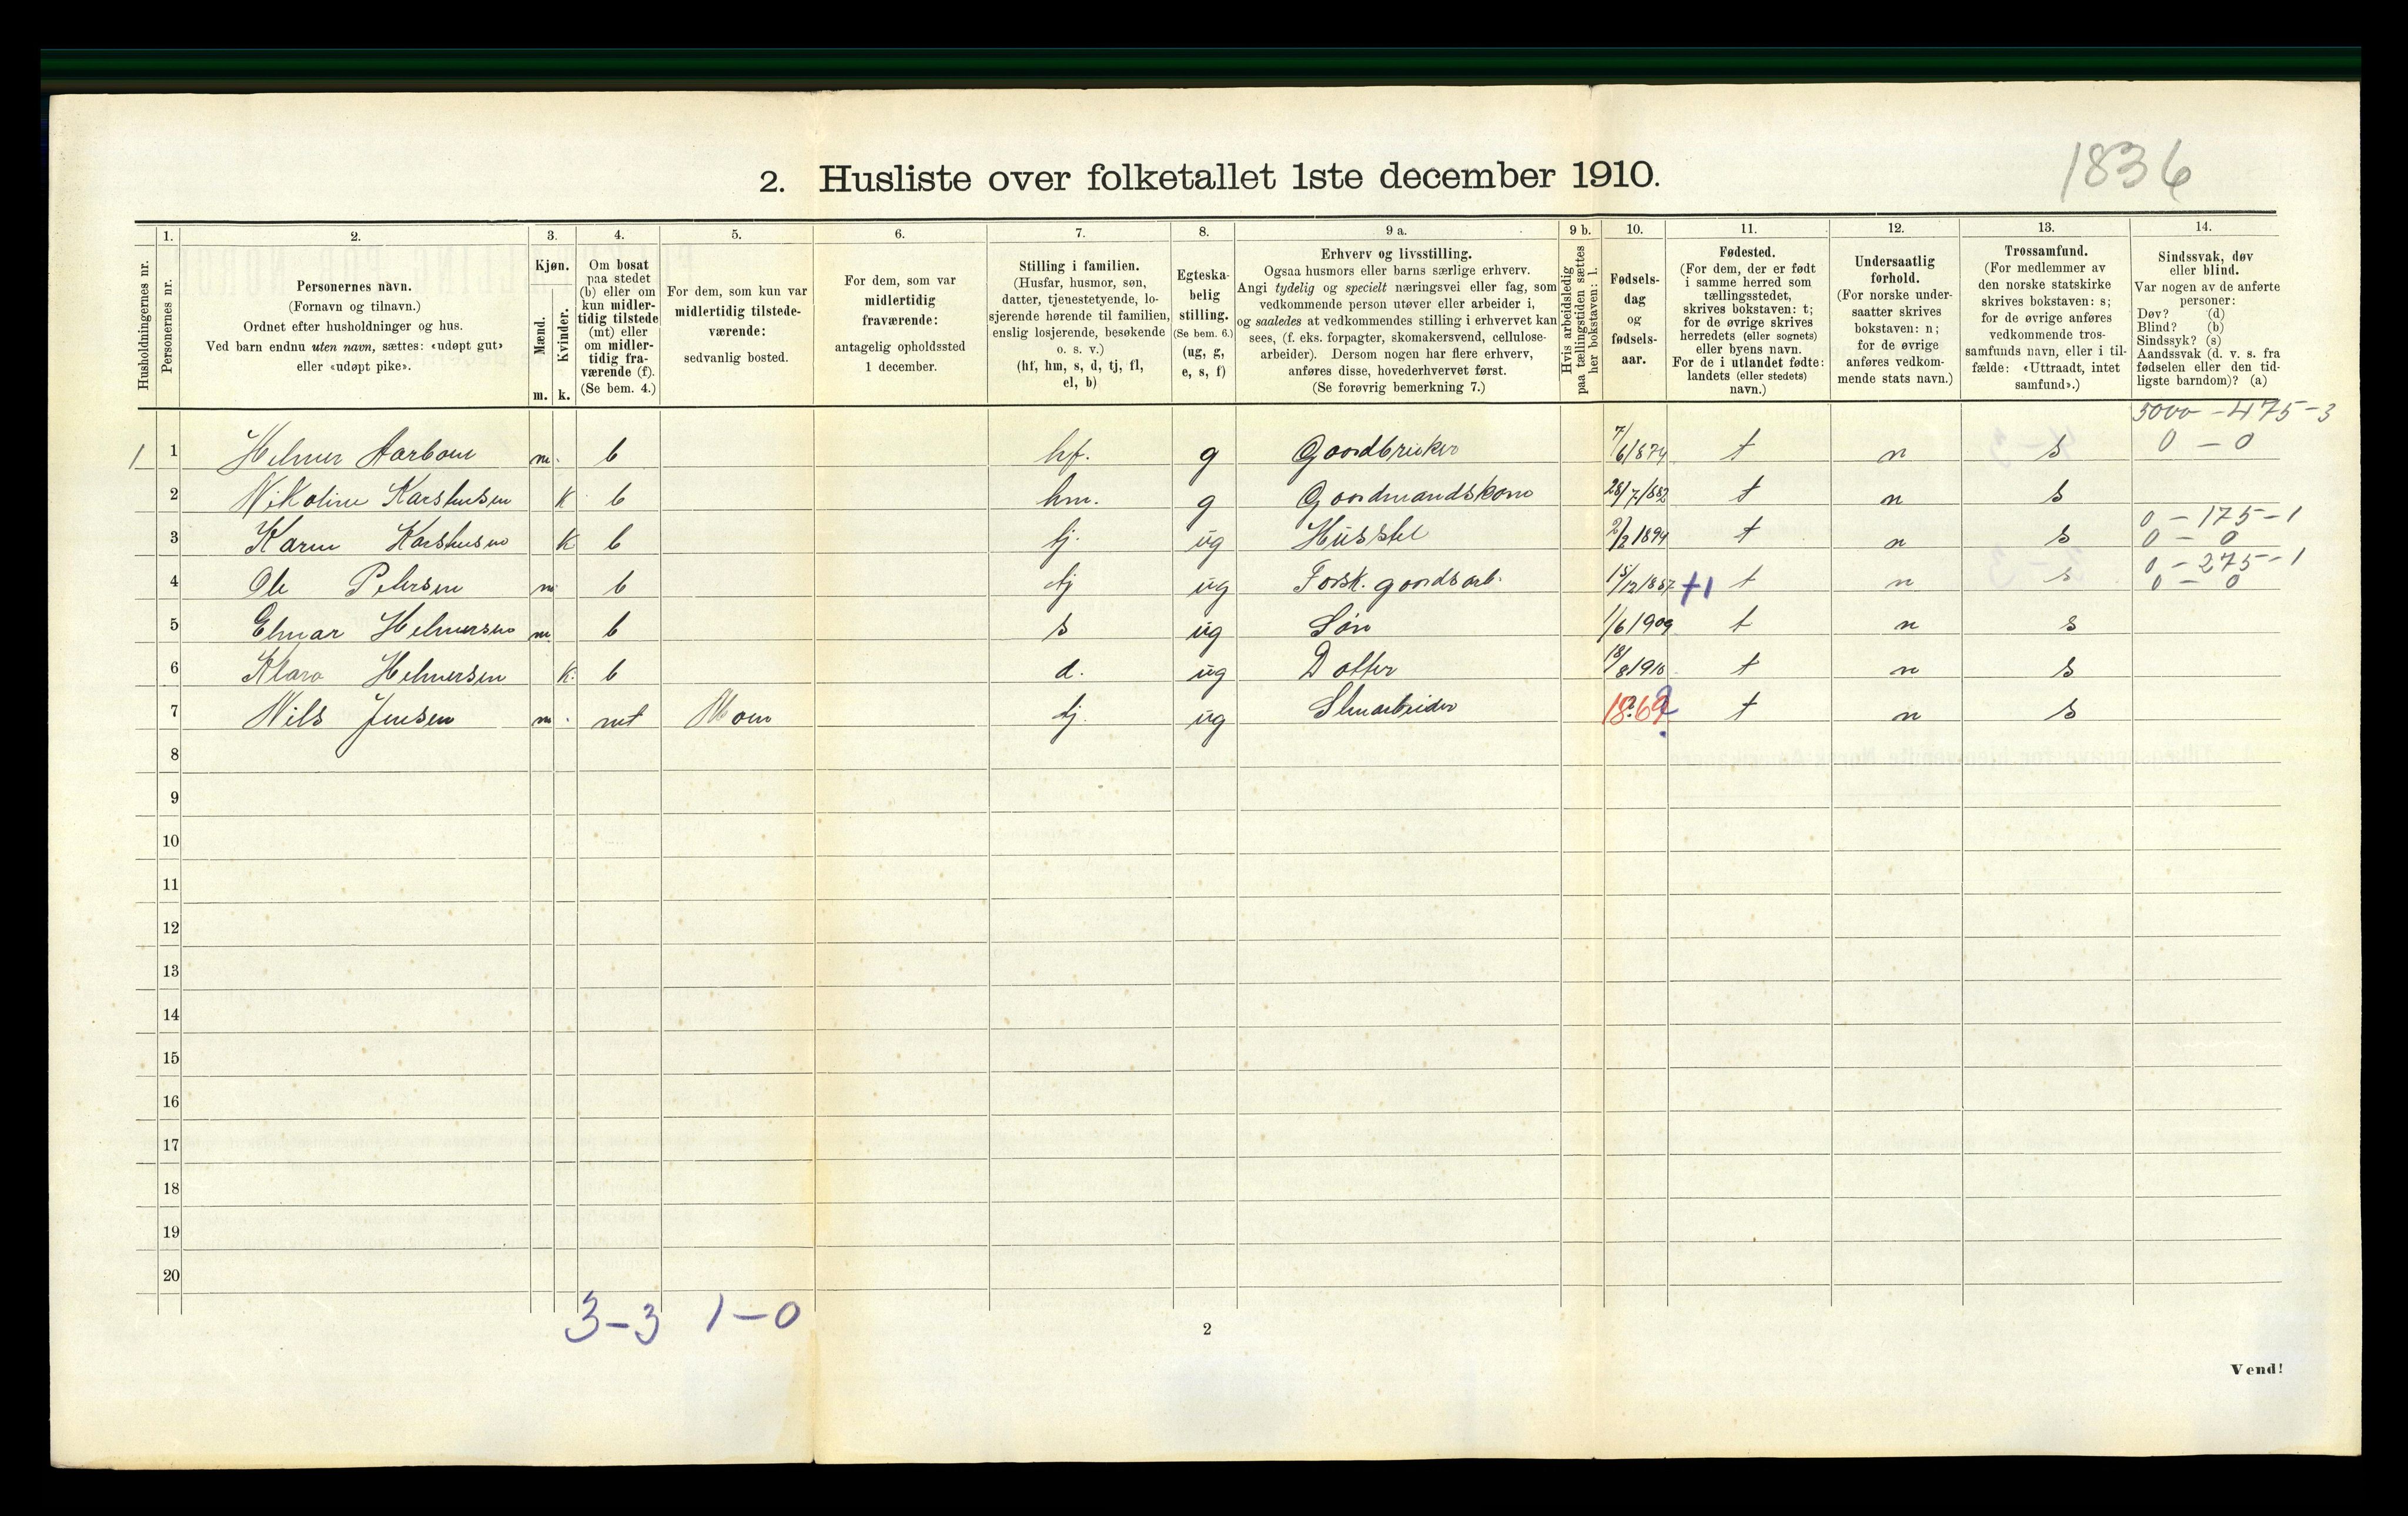 1836
2. Husliste over folketallet 1ste december 1910.
Husholdningernes nr.
1.
Personernes nr.
2.
Personernes navn.
(Fornavn og tilnavn.)
Ordnet efter husholdninger og hus.
Ved barn endnu uten navn, sættes: «udøpt gut»
eller «udøpt pike».
3.
Kjøn.
Mænd.
Kvinder.
m. k.
4.
Om bosat
paa stedet
(b) eller om
kun midler-
tidig tilstede
(mt) eller
om midler-
tidig fra-
værende (f).
(Se bem. 4.)
5.
For dem, som kun var
midlertidig tilstede-
værende:
sedvanlig bosted.
6.
For dem, som var
midlertidig
fraværende:
antagelig opholdssted
1 december.
7.
Stilling i familien.
(Husfar, husmor, søn,
datter, tjenestetyende, lo-
sjerende hørende til familien,
enslig losjerende, besøkende
o. s. v.)
(hf, hm, s, d, tj, fl,
el, b)
8.
Egteska-
belig
stilling.
(Se bem. 6.)
(ug, g,
e, s, f)
9 a.
Erhverv og livsstilling.
Ogsaa husmors eller barns særlige erhverv.
Angi tydelig og specielt næringsvei eller fag, som
vedkommende person utøver eller arbeider i,
og saaledes at vedkommendes stilling i erhvervet kan
sees, (f. eks. forpagter, skomakersvend, cellulose-
arbeider). Dersom nogen har flere erhverv,
anføres disse, hovederhvervet først.
(Se forøvrig bemerkning 7.)
9 b.
Hvis arbeidsledig
paa tællingstiden sættes
her bokstaven: l.
10.
Fødsels-
dag
og
fødsels-
aar.
11.
Fødested.
(For dem, der er født
i samme herred som
tællingsstedet,
skrives bokstaven: t;
for de øvrige skrives
herredets (eller sognets)
eller byens navn.
For de i utlandet fødte:
landets (eller stedets)
navn.)
12.
Undersaatlig
forhold.
(For norske under-
saatter skrives
bokstaven: n;
for de øvrige
anføres vedkom-
mende stats navn.)
13.
Trossamfund.
(For medlemmer av
den norske statskirke
skrives bokstaven: s;
for de øvrige anføres
vedkommende tros-
samfunds navn, eller i til-
fælde: «Uttraadt, intet
samfund».)
14.
Sindssvak, døv
eller blind.
Var nogen av de anførte
personer:
Døv? (d)
Blind? (b)
Sindssyk? (s)
Aandssvak (d. v. s. fra
fødselen eller den tid-
ligste barndom)? (a)
5000 - 475 - 3
1 1 Helmer Aarbom m. b hf. g Gaardbruker 7/6 1874 t n s 0 - 0
2 Nikoline Karstensen k b hm. g Gaardmandskone 28/7 1882 t n s
0 - 175 - 1
3 Karen Karstensen k b tj. ug Husstel 2/2 1894 t n s 0 - 0
0 - 275 - 1
4 Ole Petersen m b tj ug Forsk. gaardsarb. 15/12 1857 +1 t n s 0 - 0
5 Elmar Helmersen m. b s ug Søn 1/6 1909 t n s
6 Klara Helmersen k. b d. ug Datter 18/8 1910 t n s
7 Nils Jensen m. mt tj. ug 1869 ? t n s
8
9
10
11
12
13
14
15
16
17
18
19
20
3-3 1-0
2
Vend!